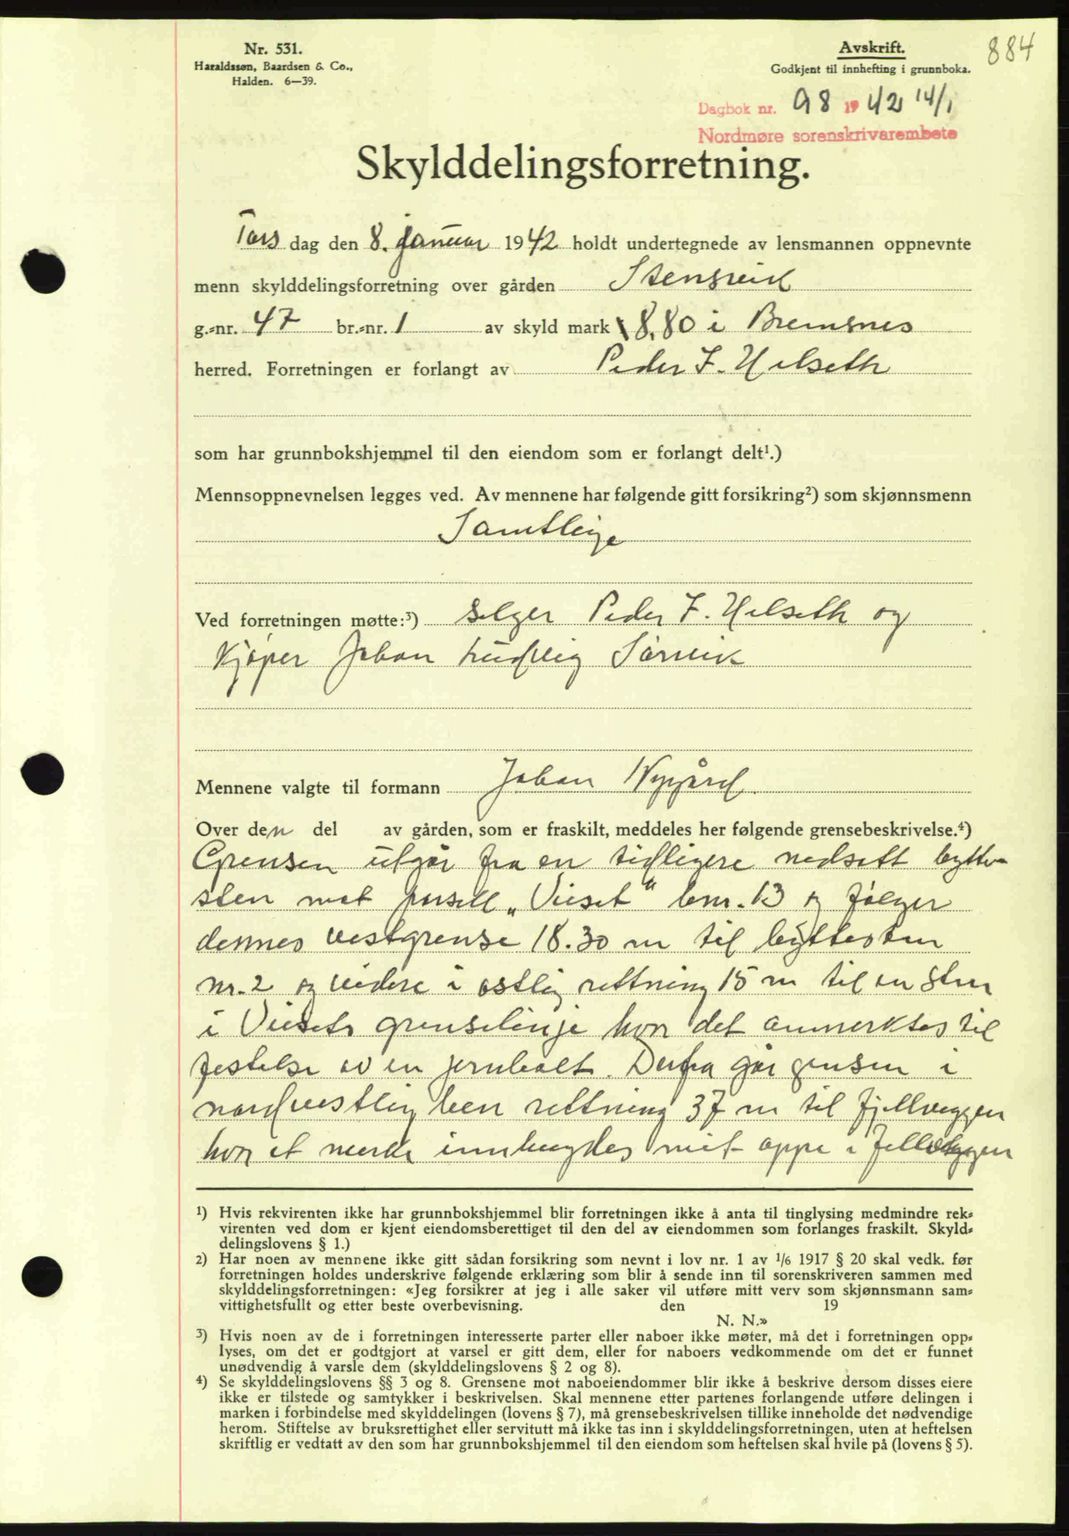 Nr. 531.
Haraldssøn, Baardsen & Co.,
Halden. 6—39.
Avskrift.
Godkjent til innhefting i grunnboka.
884
Dagbok nr. 98 1942 14/1
Nordmøre sorenskrivarembete
Skylddelingsforretning.
Tors dag den 8. januar 1942 holdt undertegnede av lensmannen oppnevnte
menn skylddelingsforretning over gården Stensreid
g.-nr. 47 br.-nr. 1 av skyld mark 8,80 i Bremsnes
herred. Forretningen er forlangt av Peder F. Helseth
som har grunnbokshjemmel til den eiendom som er forlangt delt¹.)
Mennsoppnevnelsen legges ved. Av mennene har følgende gitt forsikring²) som skjønnsmenn
Samtlige
Ved forretningen møtte:³) Selger Peder F. Helseth og
kjøper Johan Ludvig Sörvik
Mennene valgte til formann Johan Nygård.
Over den del av gården, som er fraskilt, meddeles her følgende grensebeskrivelse.⁴)
Grensen utgår fra en tidligere nedsatt bytte-
sten mot parsell „Viset" bnr. 13 og følger
dennes vestgrense 18.30 m til byttesten
nr. 2 og videre i ostlig rettning 15 m til en sten
i Visets grenselinje hvor det anmerktes til
festelse av en jernbolt. Derfra går grensen i
nordvestlig rettning 37 m til fjellveggen
hvor et merke innhugdes mit oppe i fjellveggen
¹) Hvis rekvirenten ikke har grunnbokshjemmel blir forretningen ikke å anta til tinglysing medmindre rek-
virenten ved dom er kjent eiendomsberettiget til den del av eiendommen som forlanges fraskilt. Skyld-
delingslovens § 1.)
²) Har noen av mennene ikke gitt sådan forsikring som nevnt i lov nr. 1 av 1/6 1917 § 20 skal vedk. før
forretningen holdes underskrive følgende erklæring som blir å sende inn til sorenskriveren sammen med
skylddelingsforretningen: «Jeg forsikrer at jeg i alle saker vil utføre mitt verv som skjønnsmann sam-
vittighetsfullt og etter beste overbevisning. den 19
N. N.»
³) Hvis noen av de i forretningen interesserte parter eller naboer ikke møter, må det i forretningen opp-
lyses, om det er godtgjort at varsel er gitt dem, eller for naboers vedkommende om det er funnet
unødvendig å varsle dem (skylddelingslovens § 2 og 8).
⁴) Se skylddelingslovens §§ 3 og 8. Grensene mot naboeiendommer blir ikke å beskrive dersom disses eiere
ikke er tilstede og samtykker i beskrivelsen. Skal mennene etter partenes forlangende utføre delingen i
marken i forbindelse med skylddelingen (lovens § 7), må grensebeskrivelsen tillike inneholde det nødvendige
herom. Stiftelse av bruksrettighet eller servitutt må ikke tas inn i skylddelingsforretningen, uten at heftelsen
skriftlig er vedtatt av den som har grunnbokshjemmel til den eiendom som heftelsen skal hvile på (lovens § 5).